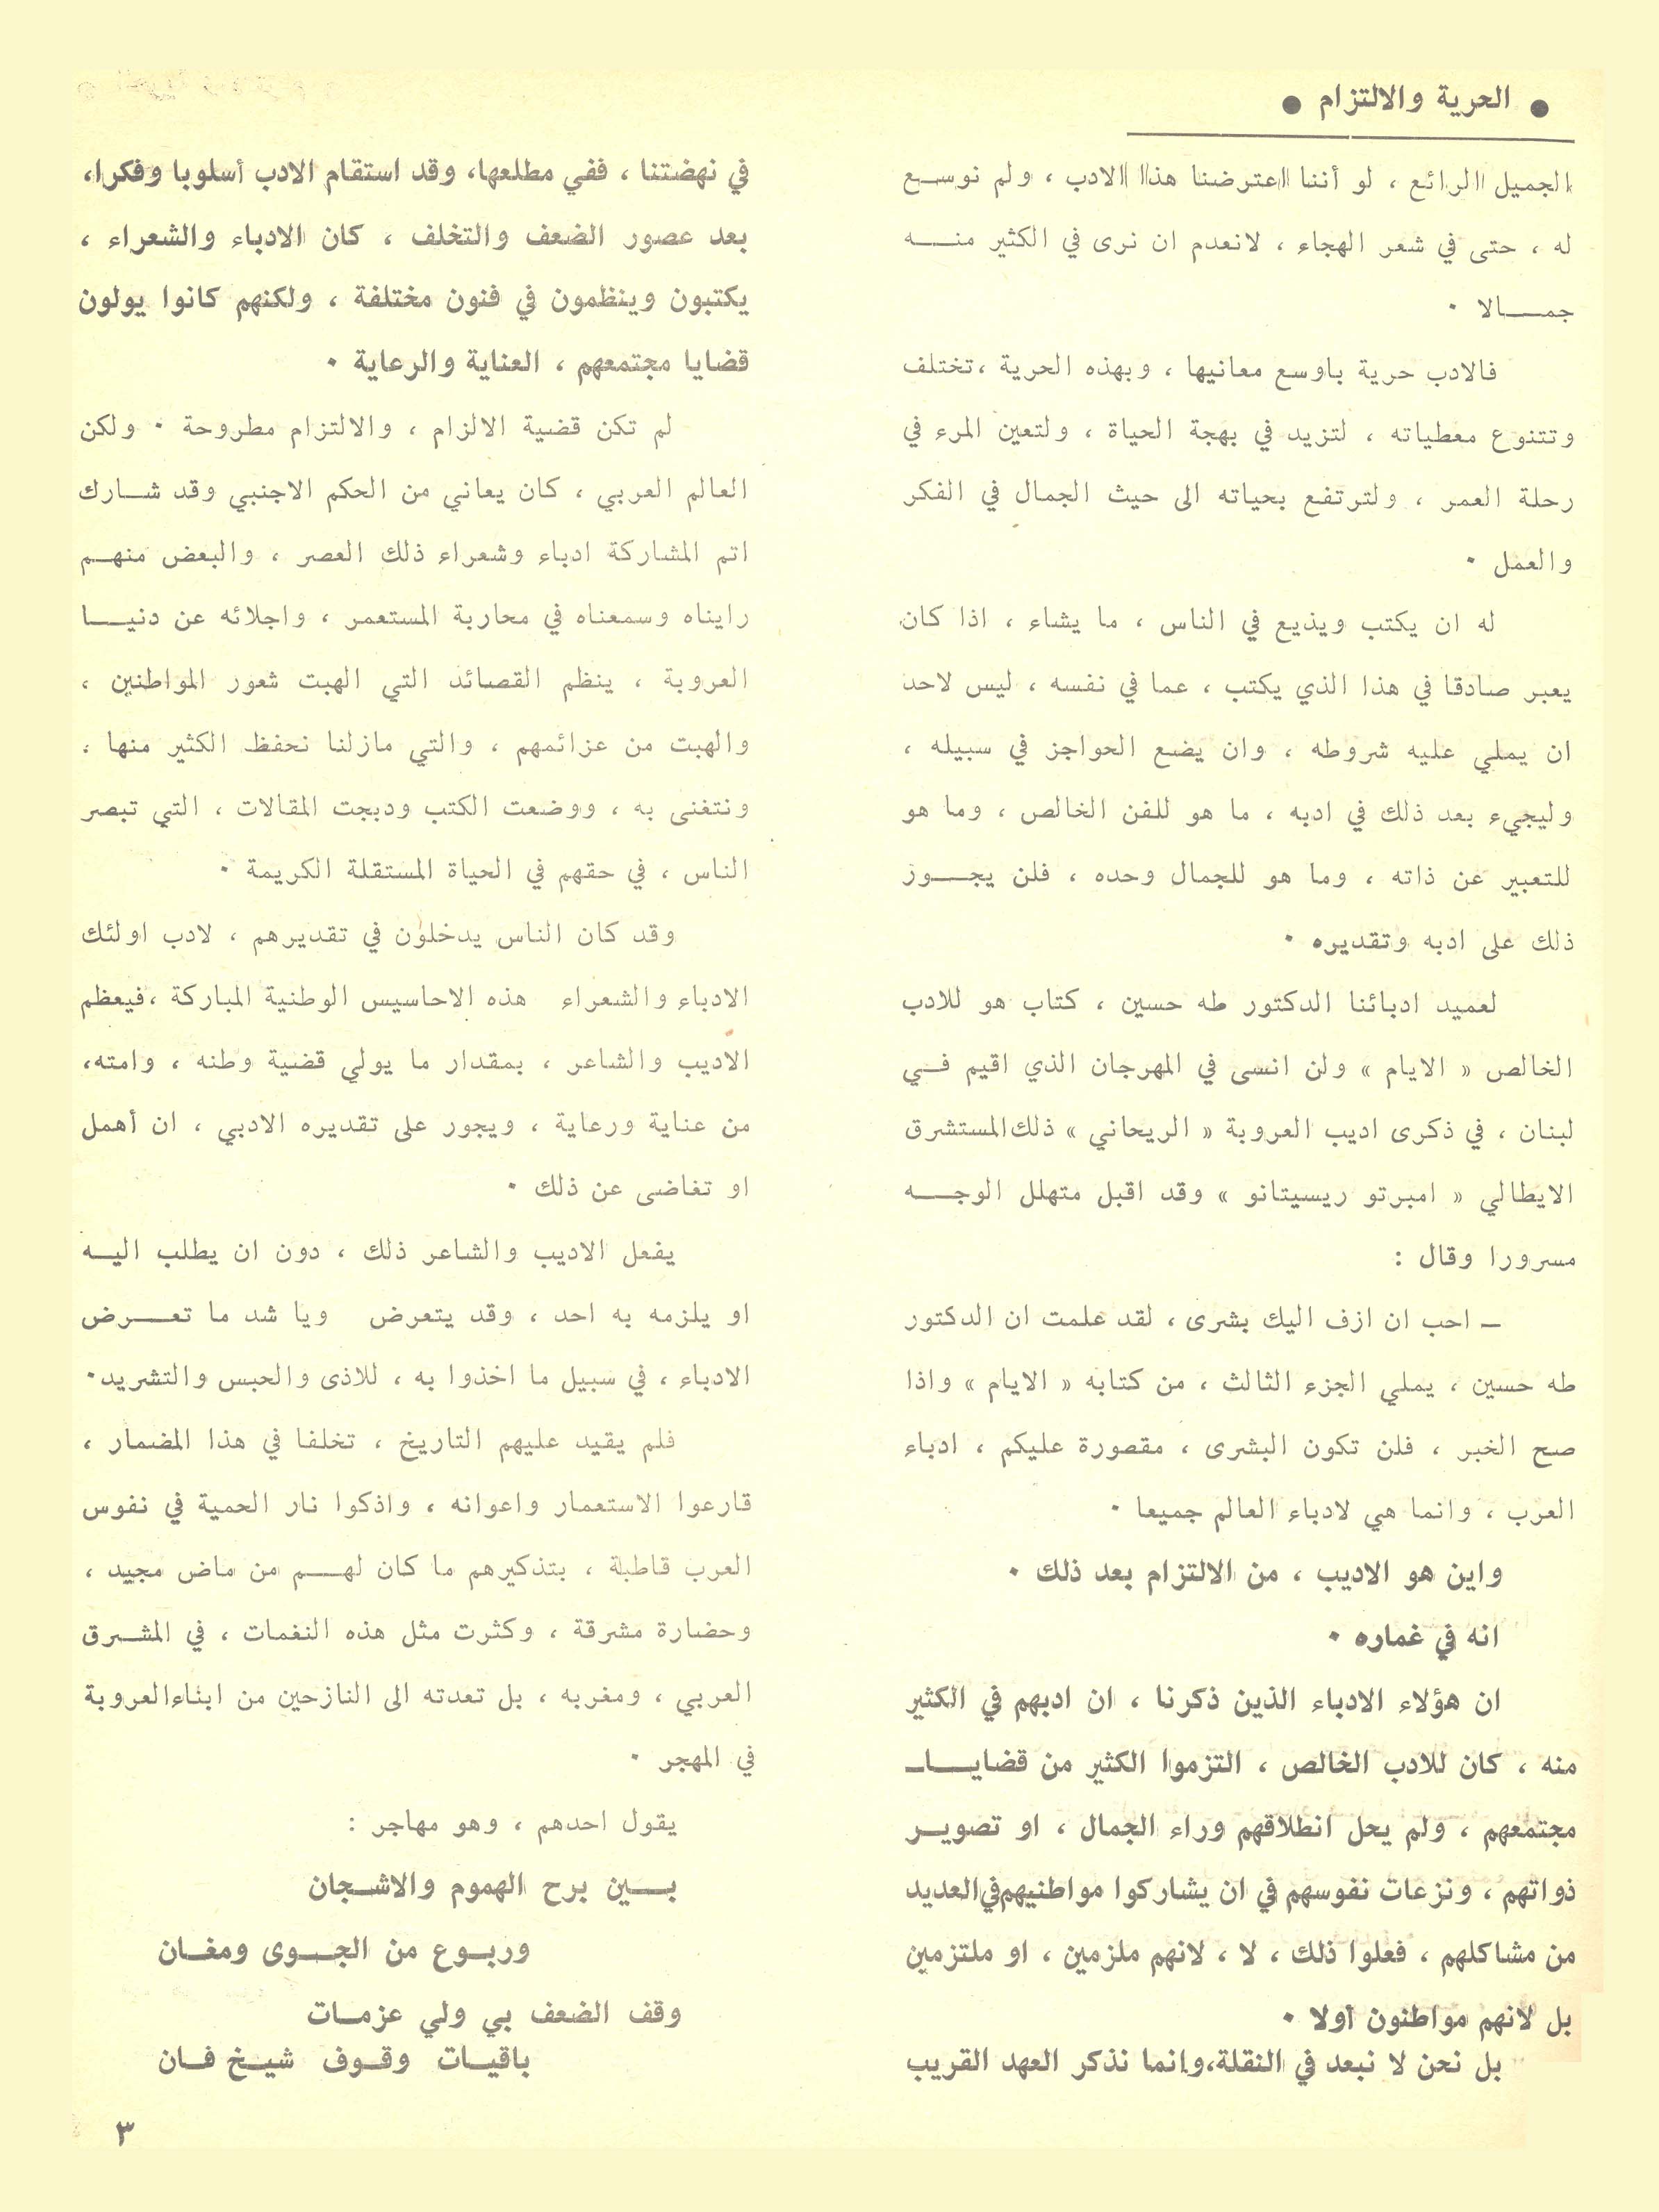 ● الحرية والالتزام ●
الجميل الرائع ، لو أننا اعترضنا هذا الادب ، ولم نوسـع
له ، حتى في شعر الهجاء ، لانعدم ان نرى في الكثير منـــه
جمـــالا ·
فالادب حرية باوسع معانيها ، وبهذه الحرية ،تختلف
وتتنوع معطياته ، لتزيد في بهجة الحياة ، ولتعين المرء في
رحلة العمر ، ولترتفع بحياته الى حيث الجمال في الفكر
والعمل ·
له ان يكتب ويذيع في الناس ، ما يشاء ، اذا كان
يعبر صادقا في هذا الذي يكتب ، عما في نفسه ، ليس لاحد
ان يملي عليه شروطه ، وان يضع الحواجز في سبيله ،
وليجيء بعد ذلك في ادبه ، ما هو للفن الخالص ، وما هو
للتعبير عن ذاته ، وما هو للجمال وحده ، فلن يجــوز
ذلك على ادبه وتقديره ·
لعميد ادبائنا الدكتور طه حسين ، كتاب هو للادب
الخالص « الايام » ولن انسى في المهرجان الذي اقيم فـي
لبنان ، في ذكرى اديب العروبة « الريحاني » ذلك المستشرق
الايطالي « امبرتو ريسيتانو » وقد اقبل متهلل الوجــه
مسرورا وقال :
ــ احب ان ازف اليك بشرى ، لقد علمت ان الدكتور
طه حسين ، يملي الجزء الثالث ، من كتابه « الايام » واذا
صح الخبر ، فلن تكون البشرى ، مقصورة عليكم ، ادباء
العرب ، وانما هي لادباء العالم جميعا ·
واين هو الاديب ، من الالتزام بعد ذلك ·
انه في غماره ·
ان هؤلاء الادباء الذين ذكرنا ، ان ادبهم في الكثير
منه ، كان للادب الخالص ، التزموا الكثير من قضايـــا
مجتمعهم ، ولم يحل انطلاقهم وراء الجمال ، او تصويـر
ذواتهم ، ونزعات نفوسهم في ان يشاركوا مواطنيهم في العديد
من مشاكلهم ، فعلوا ذلك ، لا ، لانهم ملزمين ، او ملتزمين
بل لانهم مواطنون أولا ·
بل نحن لا نبعد في النقلة،وانما نذكر العهد القريب
في نهضتنا ، ففي مطلعها، وقد استقام الادب أسلوبا وفكرا،
بعد عصور الضعف والتخلف ، كان الادباء والشعراء ،
يكتبون وينظمون في فنون مختلفة ، ولكنهم كانوا يولون
قضايا مجتمعهم ، العناية والرعاية ·
لم تكن قضية الالزام ، والالتزام مطروحة · ولكن
العالم العربي ، كان يعاني من الحكم الاجنبي وقد شـارك
اتم المشاركة ادباء وشعراء ذلك العصر ، والبعض منهـم
رايناه وسمعناه في محاربة المستعمر ، واجلائه عن دنيـــا
العروبة ، ينظم القصائد التي الهبت شعور المواطنين ،
والهبت من عزائمهم ، والتي مازلنا نحفظ الكثير منها ،
ونتغنى به ، ووضعت الكتب ودبجت المقالات ، التي تبصر
الناس ، في حقهم في الحياة المستقلة الكريمة ·
وقد كان الناس يدخلون في تقديرهم ، لادب اولئك
الادباء والشعراء هذه الاحاسيس الوطنية المباركة ،فيعظم
الاديب والشاعر ، بمقدار ما يولي قضية وطنه ، وامته،
من عناية ورعاية ، ويجور على تقديره الادبي ، ان أهمل
او تغاضى عن ذلك ·
يفعل الاديب والشاعر ذلك ، دون ان يطلب اليـه
او يلزمه به احد ، وقد يتعرض ويا شد ما تعـــرض
الادباء ، في سبيل ما اخذوا به ، للاذى والحبس والتشريد·
فلم يقيد عليهم التاريخ ، تخلفا في هذا المضمار ،
قارعوا الاستعمار واعوانه ، واذكوا نار الحمية في نفوس
العرب قاطبة ، بتذكيرهم ما كان لهـــم من ماض مجيد ،
وحضارة مشرقة ، وكثرت مثل هذه النغمات ، في المشـرق
العربي ، ومغربه ، بل تعدته الى النازحين من ابناءالعروبة
في المهجر ·
يقول احدهم ، وهو مهاجر :
بـــين برح الهموم والاشـجان
وربـوع من الجــوى ومغـان
وقف الضعف بي ولي عزمـات
باقيـات وقـوف شيـخ فـان
٣